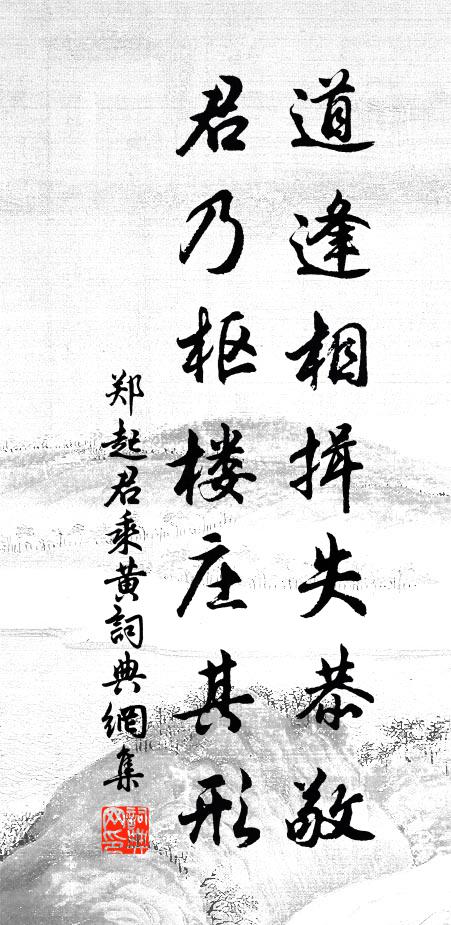 道逢相揖失恭敬
君乃枢楼庄其形
郑起君乘黄詞典網集